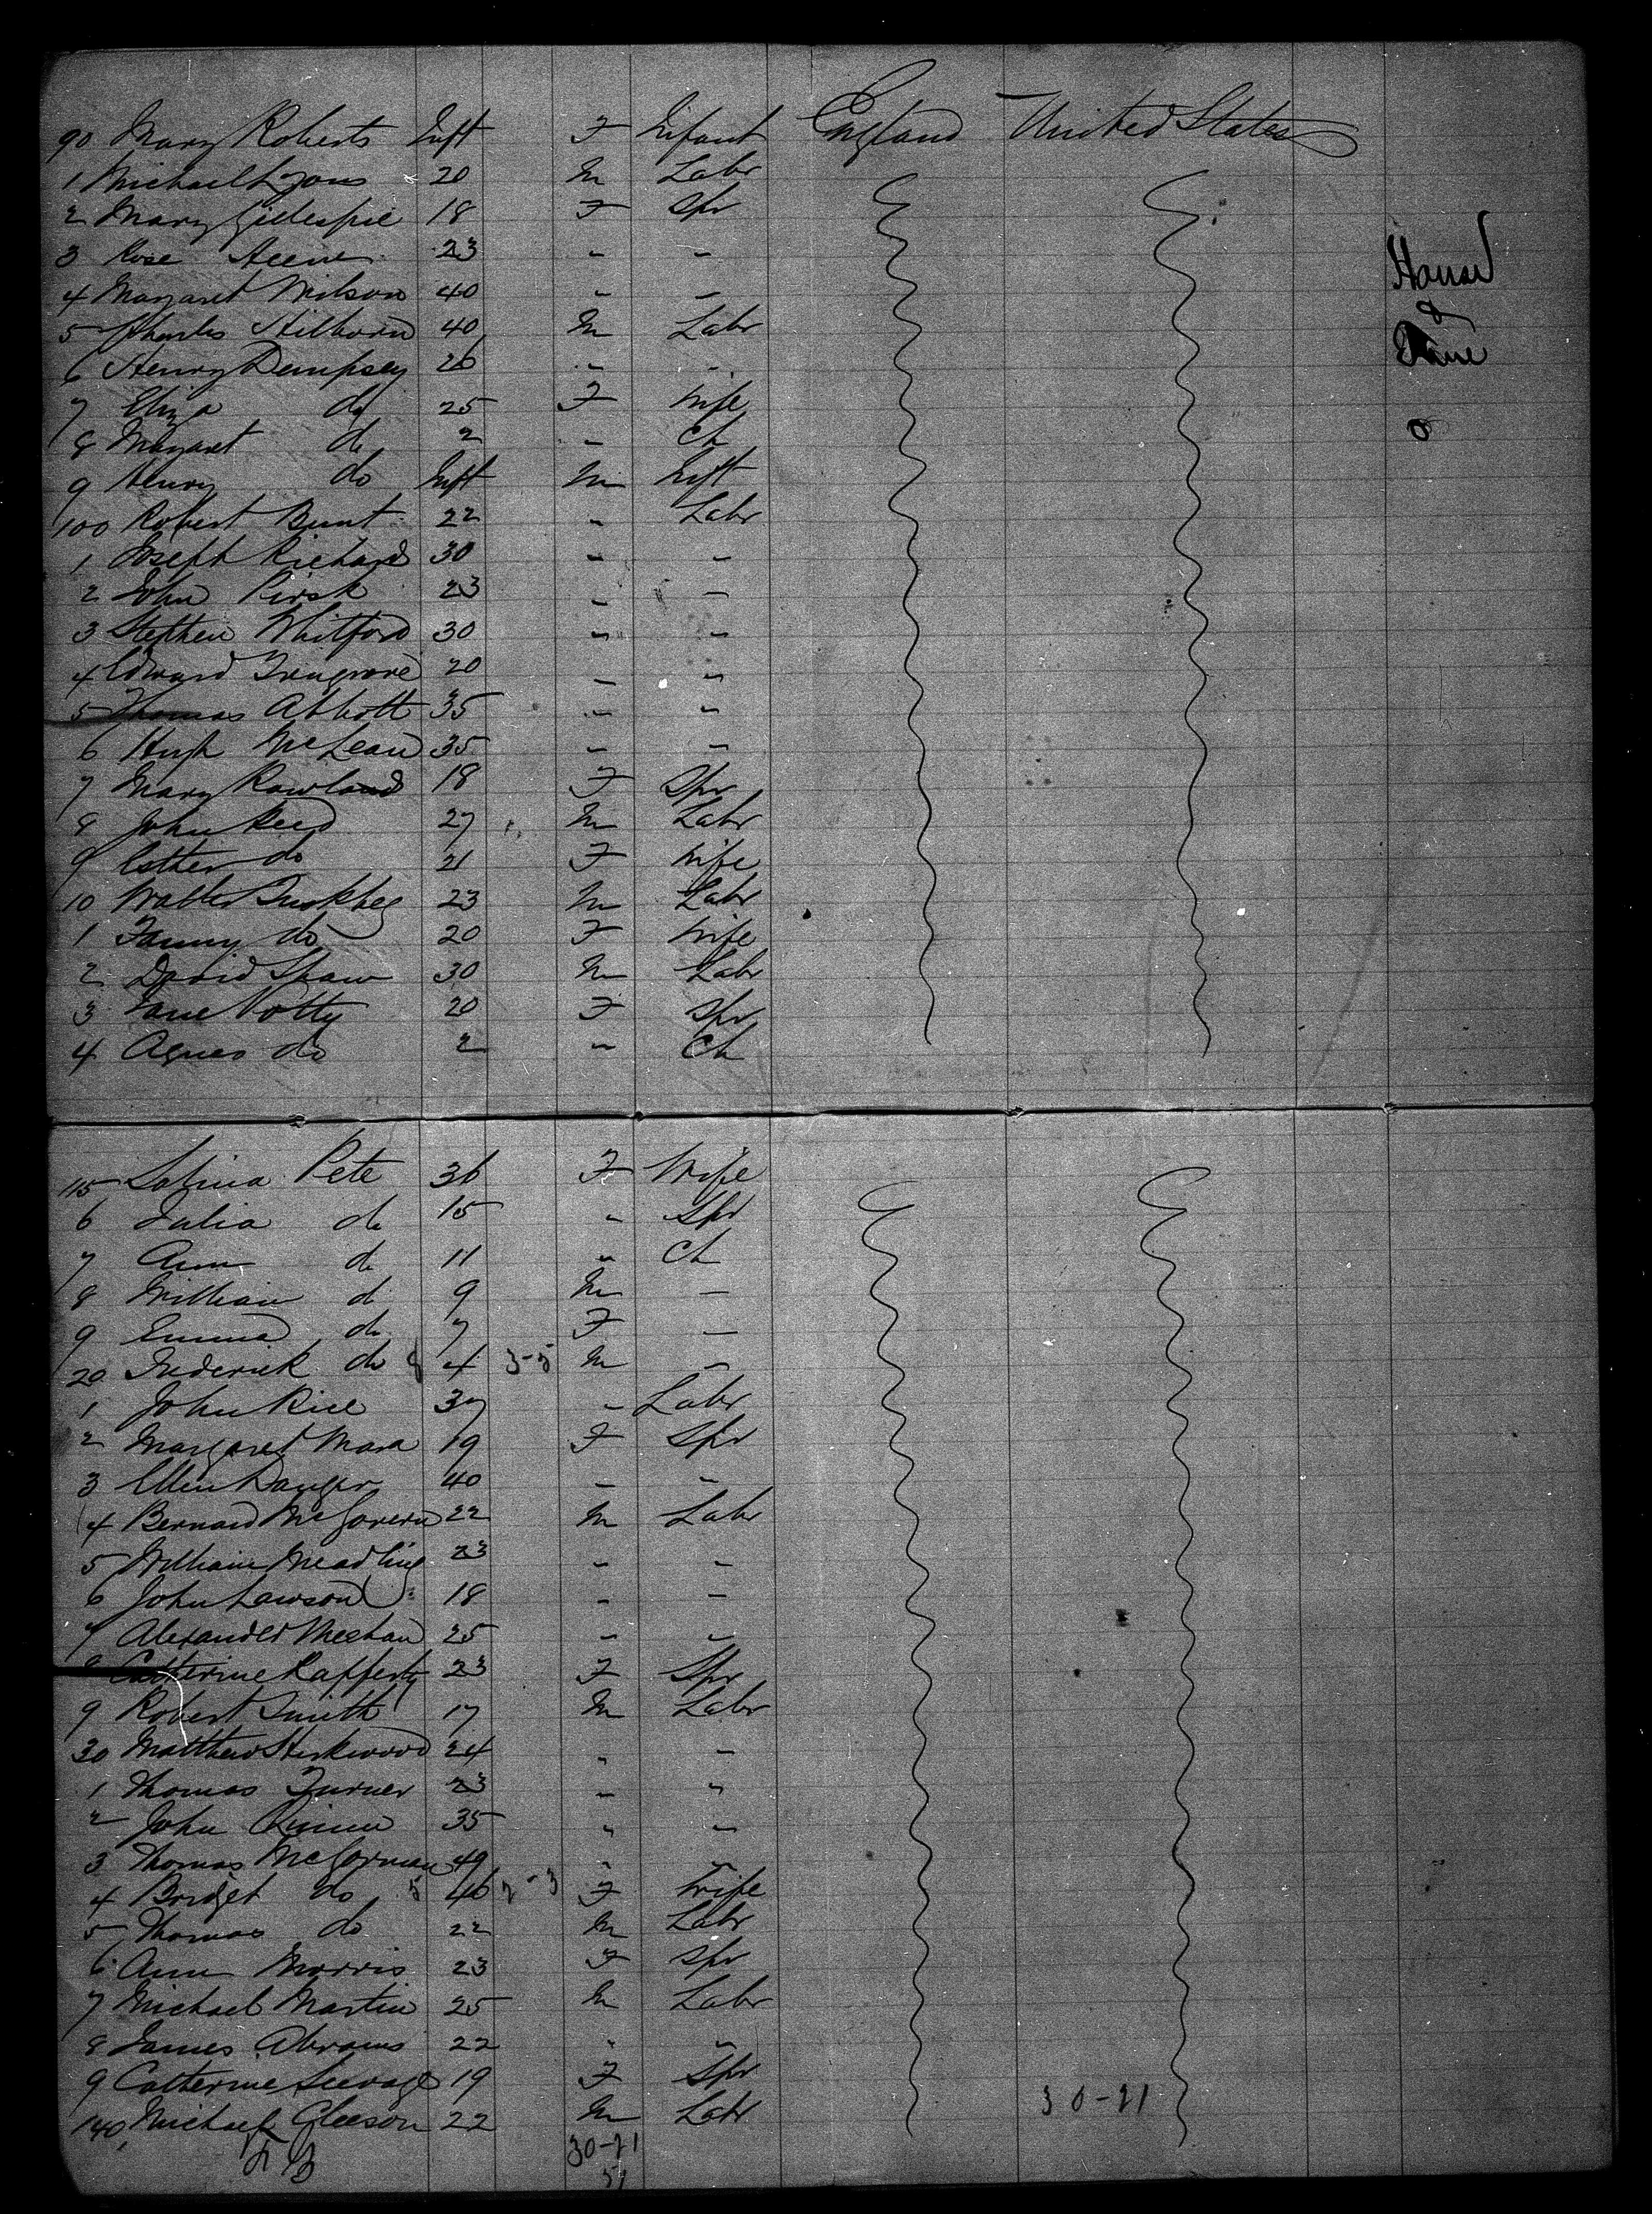 90 Mary Roberts Inft F Infant England United States
1 Michael Lyons 20 M Labr
2 Mary Gillespie 18 F Spr
3 Rose 23 " "
4 Margaret Wilson 40 " "
5 Charles Hilborn 40 M Labr
6 Henry Dempsey 26 " "
7 Eliza do 25 F Wife
8 Margaret do 2 " Ch
9 Henry do Inft M Inft
100 Robert Bunt 22 " Labr
1 Joseph Richard 30 " "
2 John 23 " "
3 Stephen Whitford 30 " "
4 Edward 20 " "
5 Thomas Abbott 35 " "
6 Hugh McLean 35 " "
7 Mary Rowland 18 F Spr
8 John Reed 27 M Labr
9 Esther do 21 F Wife
10 Walter 23 M Labr
1 Fanny do 20 F Wife
2 David Shaw 30 M Labr
3 Jane Notty 20 F Spr
4 Agnes do 2 " Ch
115 Sabina Pete 36 F Wife
6 Julia do 15 " Spr
7 Ann do 11 " Ch
8 William do 9 M "
9 Emma do 7 F "
20 Frederick do 4 3-5 M "
1 John Rice 37 " Labr
2 Margaret Mara 19 F Spr
3 Ellen 40 " "
4 Bernard McGovern 22 M Labr
5 William Meadling 23 " "
6 John Lawson 18 " "
7 Alexander Meehan 25 " "
8 Catherine Rafferty 23 F Spr
9 Robert Smith 17 M Labr
30 Matthew 24 " "
1 Thomas Turner 23 " "
2 John 35 " "
3 Thomas McGorman 49 " "
4 Bridget do 46 F Wife
5 Thomas do 22 M Labr
6 Ann Morris 23 F Spr
7 Michael Martin 25 M Labr
8 James Abrams 22 " "
9 Catherine 19 F Spr
140 Michael Gleeson 22 M Labr
30-21
30-21
51